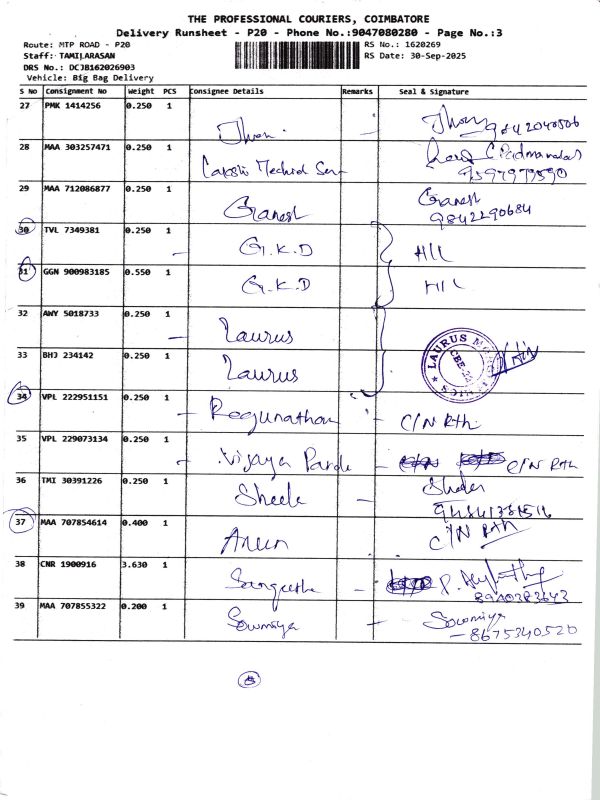 THE PROFESSIONAL COURIERS, COIMBATORE
Delivery Runsheet - P20 - Phone No.:9047080280 - Page No.:3
Route: MTP ROAD - P20 RS No.: 1620269
Staff: TAMILARASAN RS Date: 30-Sep-2025
DRS No.: DCJB162026903
Vehicle: Big Bag Delivery
S No Consignment No Weight PCS Consignee Details Remarks Seal & Signature
27 PMK 1414256 0.250 1
28 MAA 303257471 0.250 1 9597979590
29 MAA 712086877 0.250 1 Ganesh Ganesh
9842290684
30 TVL 7349381 0.250 1 - G.K.D H/L
31 GGN 900983185 0.550 1 G.K.D H/L
32 AWY 5018733 0.250 1 - Laurus
33 BHJ 234142 0.250 1 Laurus LAURUS
34 VPL 222951151 0.250 1 - Ragunathan - C/N Rth
35 VPL 229073134 0.250 1 - Vijaya C/N Rth
36 TMI 30391226 0.250 1 Sheela -
37 MAA 707854614 0.400 1 Arun C/N Rth
38 CNR 1900916 3.630 1 Sangeetha - P.
8940383643
39 MAA 707855322 0.200 1 Sowmiya - Sowmiya
- 8675340520